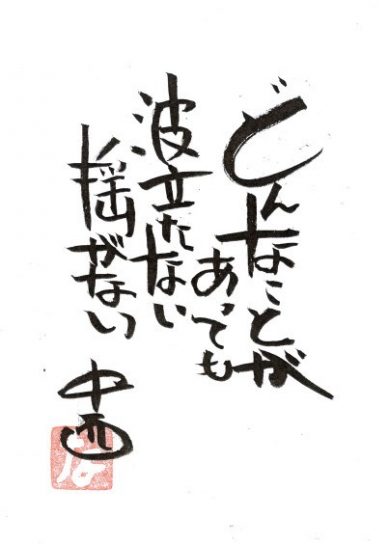 どんなことが
あっても
波立たない
揺がない
中西
な